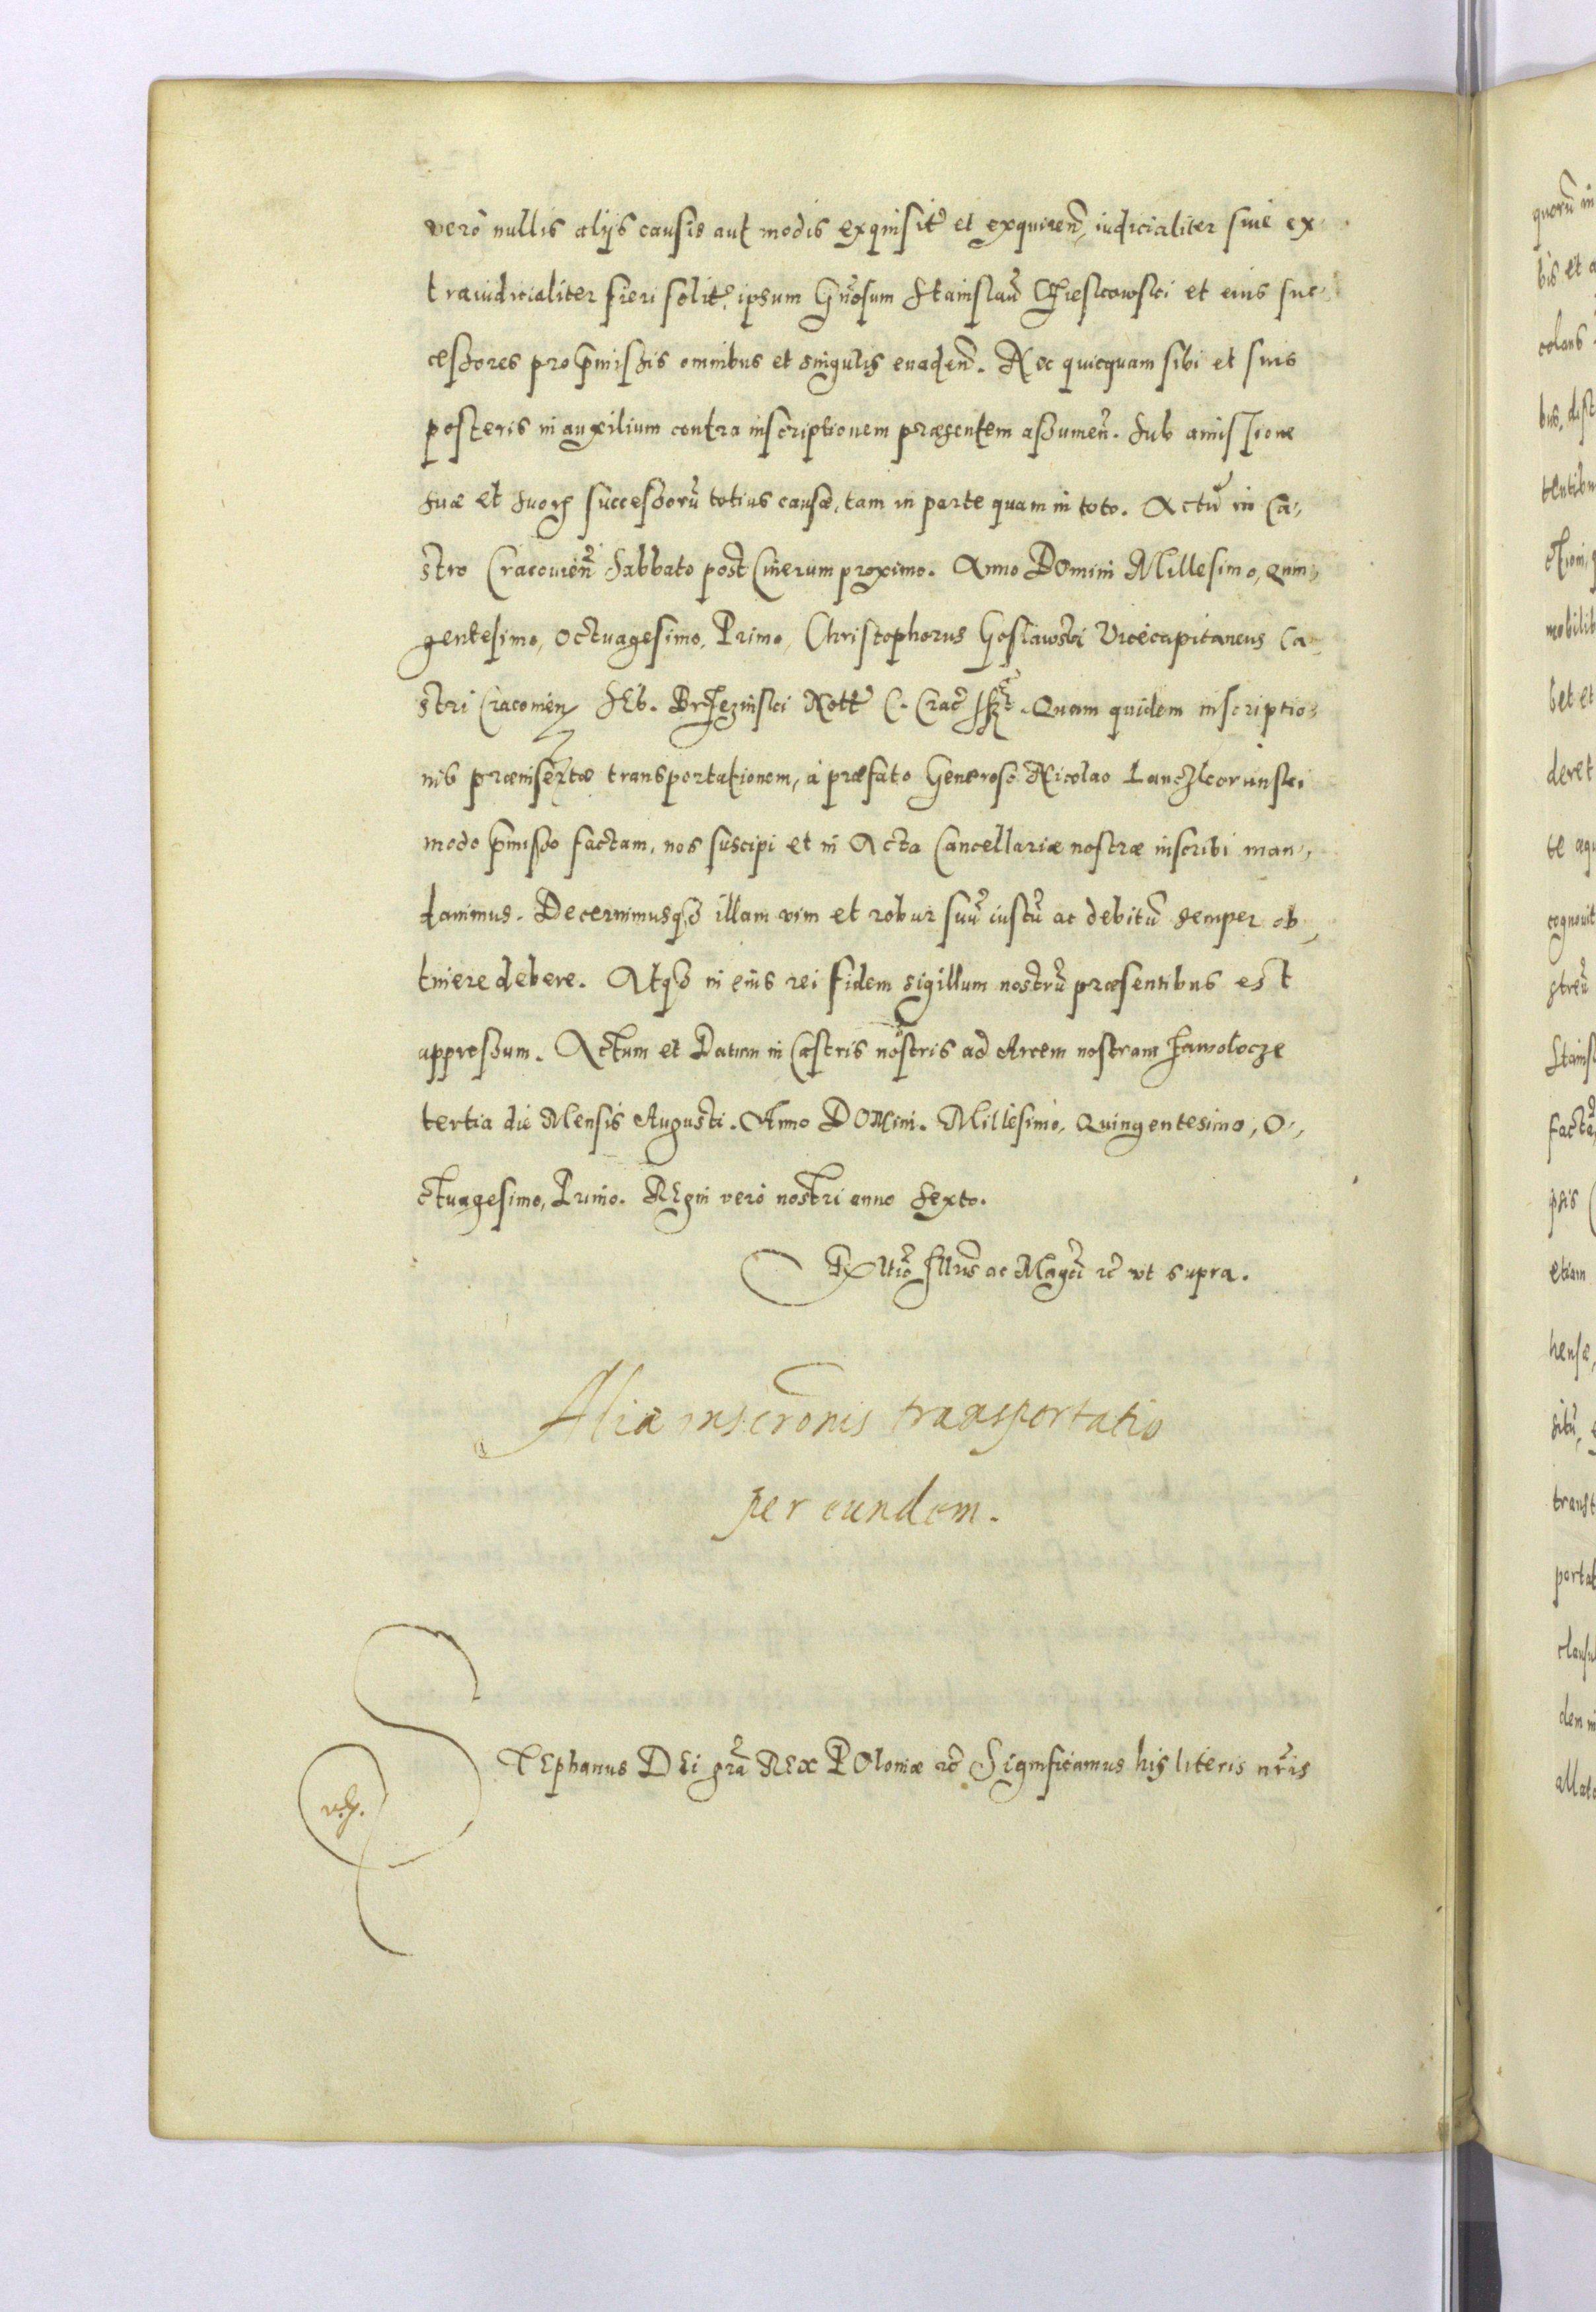 vero nullis alijs causis aut modis exquisit̃ et exquiren̄, iudicialiter siue ex
traiudicialiter fieri solit̃, ipsum Gñosum Stanislaũ Cikowski et eius suc
cessores pro p̄missis omnibus et singulis euaden̄. Nec quicquam sibi et suis
posteris in auxilium contra inscriptionem præsentem assumen̄. Sub amissione
suæ et suorꝫ successorũ totius causæ, tam in parte quam in toto. Actũ in Ca,
stro Cracouien̄ Sabbato post Cinerum proximo. Anno DOmini Millesimo, Quin,
gentesimo, Octuagesimo, Primo, Christophorus Goslawski Vicecapitaneus Ca,
stri Cracouien̄ Seb. Brzezinski Nott̃ C. Crac̃ sszt. Quam quidem inscriptio,
nis præinsertæ transportationem, à præfato Generoso Nicolao Lanczkorunski
modo p̄misso factam, nos suscipi et in Acta Cancellariæ nostræ inscribi man,
dauimus. Decernimusqꝫ illam vim et robur suũ iustũ ac debitũ semper ob,
tinere debere. Atqꝫ in eius rei fidem sigillum nostrũ præsentibus est
appressum. Actum et Datum in Castris nostris ad Arcem nostram Zawolocze
tertia die Mensis Augusti. Anno DOmini. Millesimo, Quingentesimo, O,
ctuagesimo, Primo. REgni verò nostri anno Sexto.
Rltio Illris ac Magci rc̃ vt supra.
Alia inscronis transportatio
per eundem.
STEphanus DEi grã REx POloniæ rc̃ Significamus his literis nr̃is